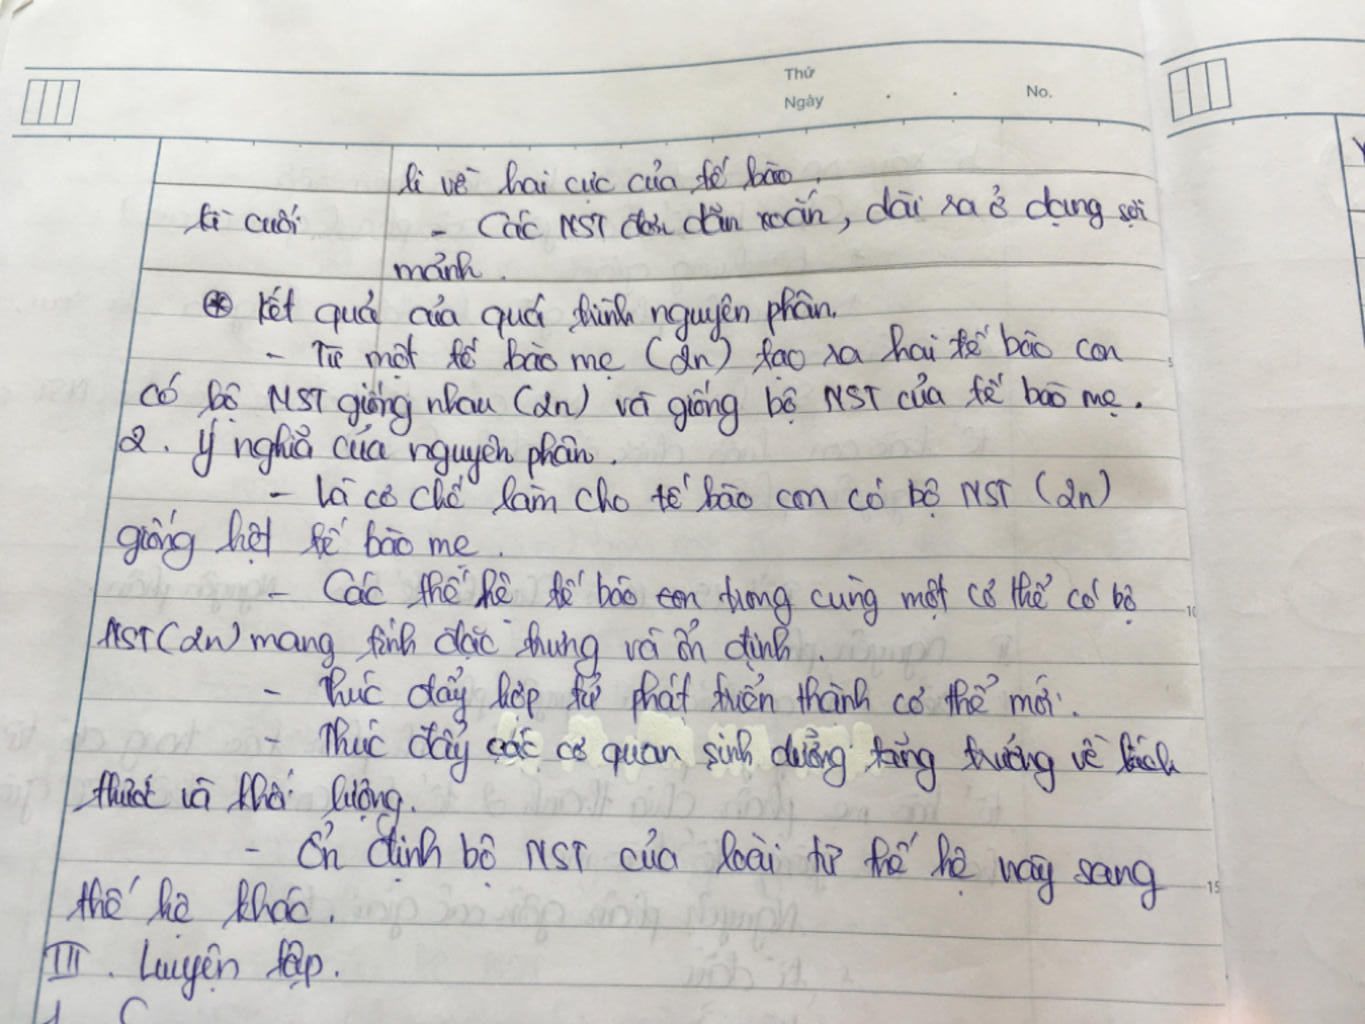 Thứ
Ngày
No.
li về hai cực của tế bào.
kì cuối
- Các NST đơn dãn xoắn, dài ra ở dạng sợi
mảnh.
* Kết quả của quá trình nguyên phân.
- Từ một tế bào mẹ (2n) tạo ra hai tế bào con
có bộ NST giống nhau (2n) và giống bộ NST của tế bào mẹ.
2. Ý nghĩa của nguyên phân.
- Là cơ chế làm cho tế bào con có bộ NST (2n)
giống hệt tế bào mẹ.
- Các thế hệ tế bào con trong cùng một cơ thể có bộ
NST (2n) mang tính đặc trưng và ổn định.
- Thúc đẩy hợp tử phát triển thành cơ thể mới.
- Thúc đẩy các cơ quan sinh dưỡng tăng trưởng về kích
thước và khối lượng.
- Ổn định bộ NST của loài từ thế hệ này sang
thế hệ khác.
III. Luyện tập.
5
10
15